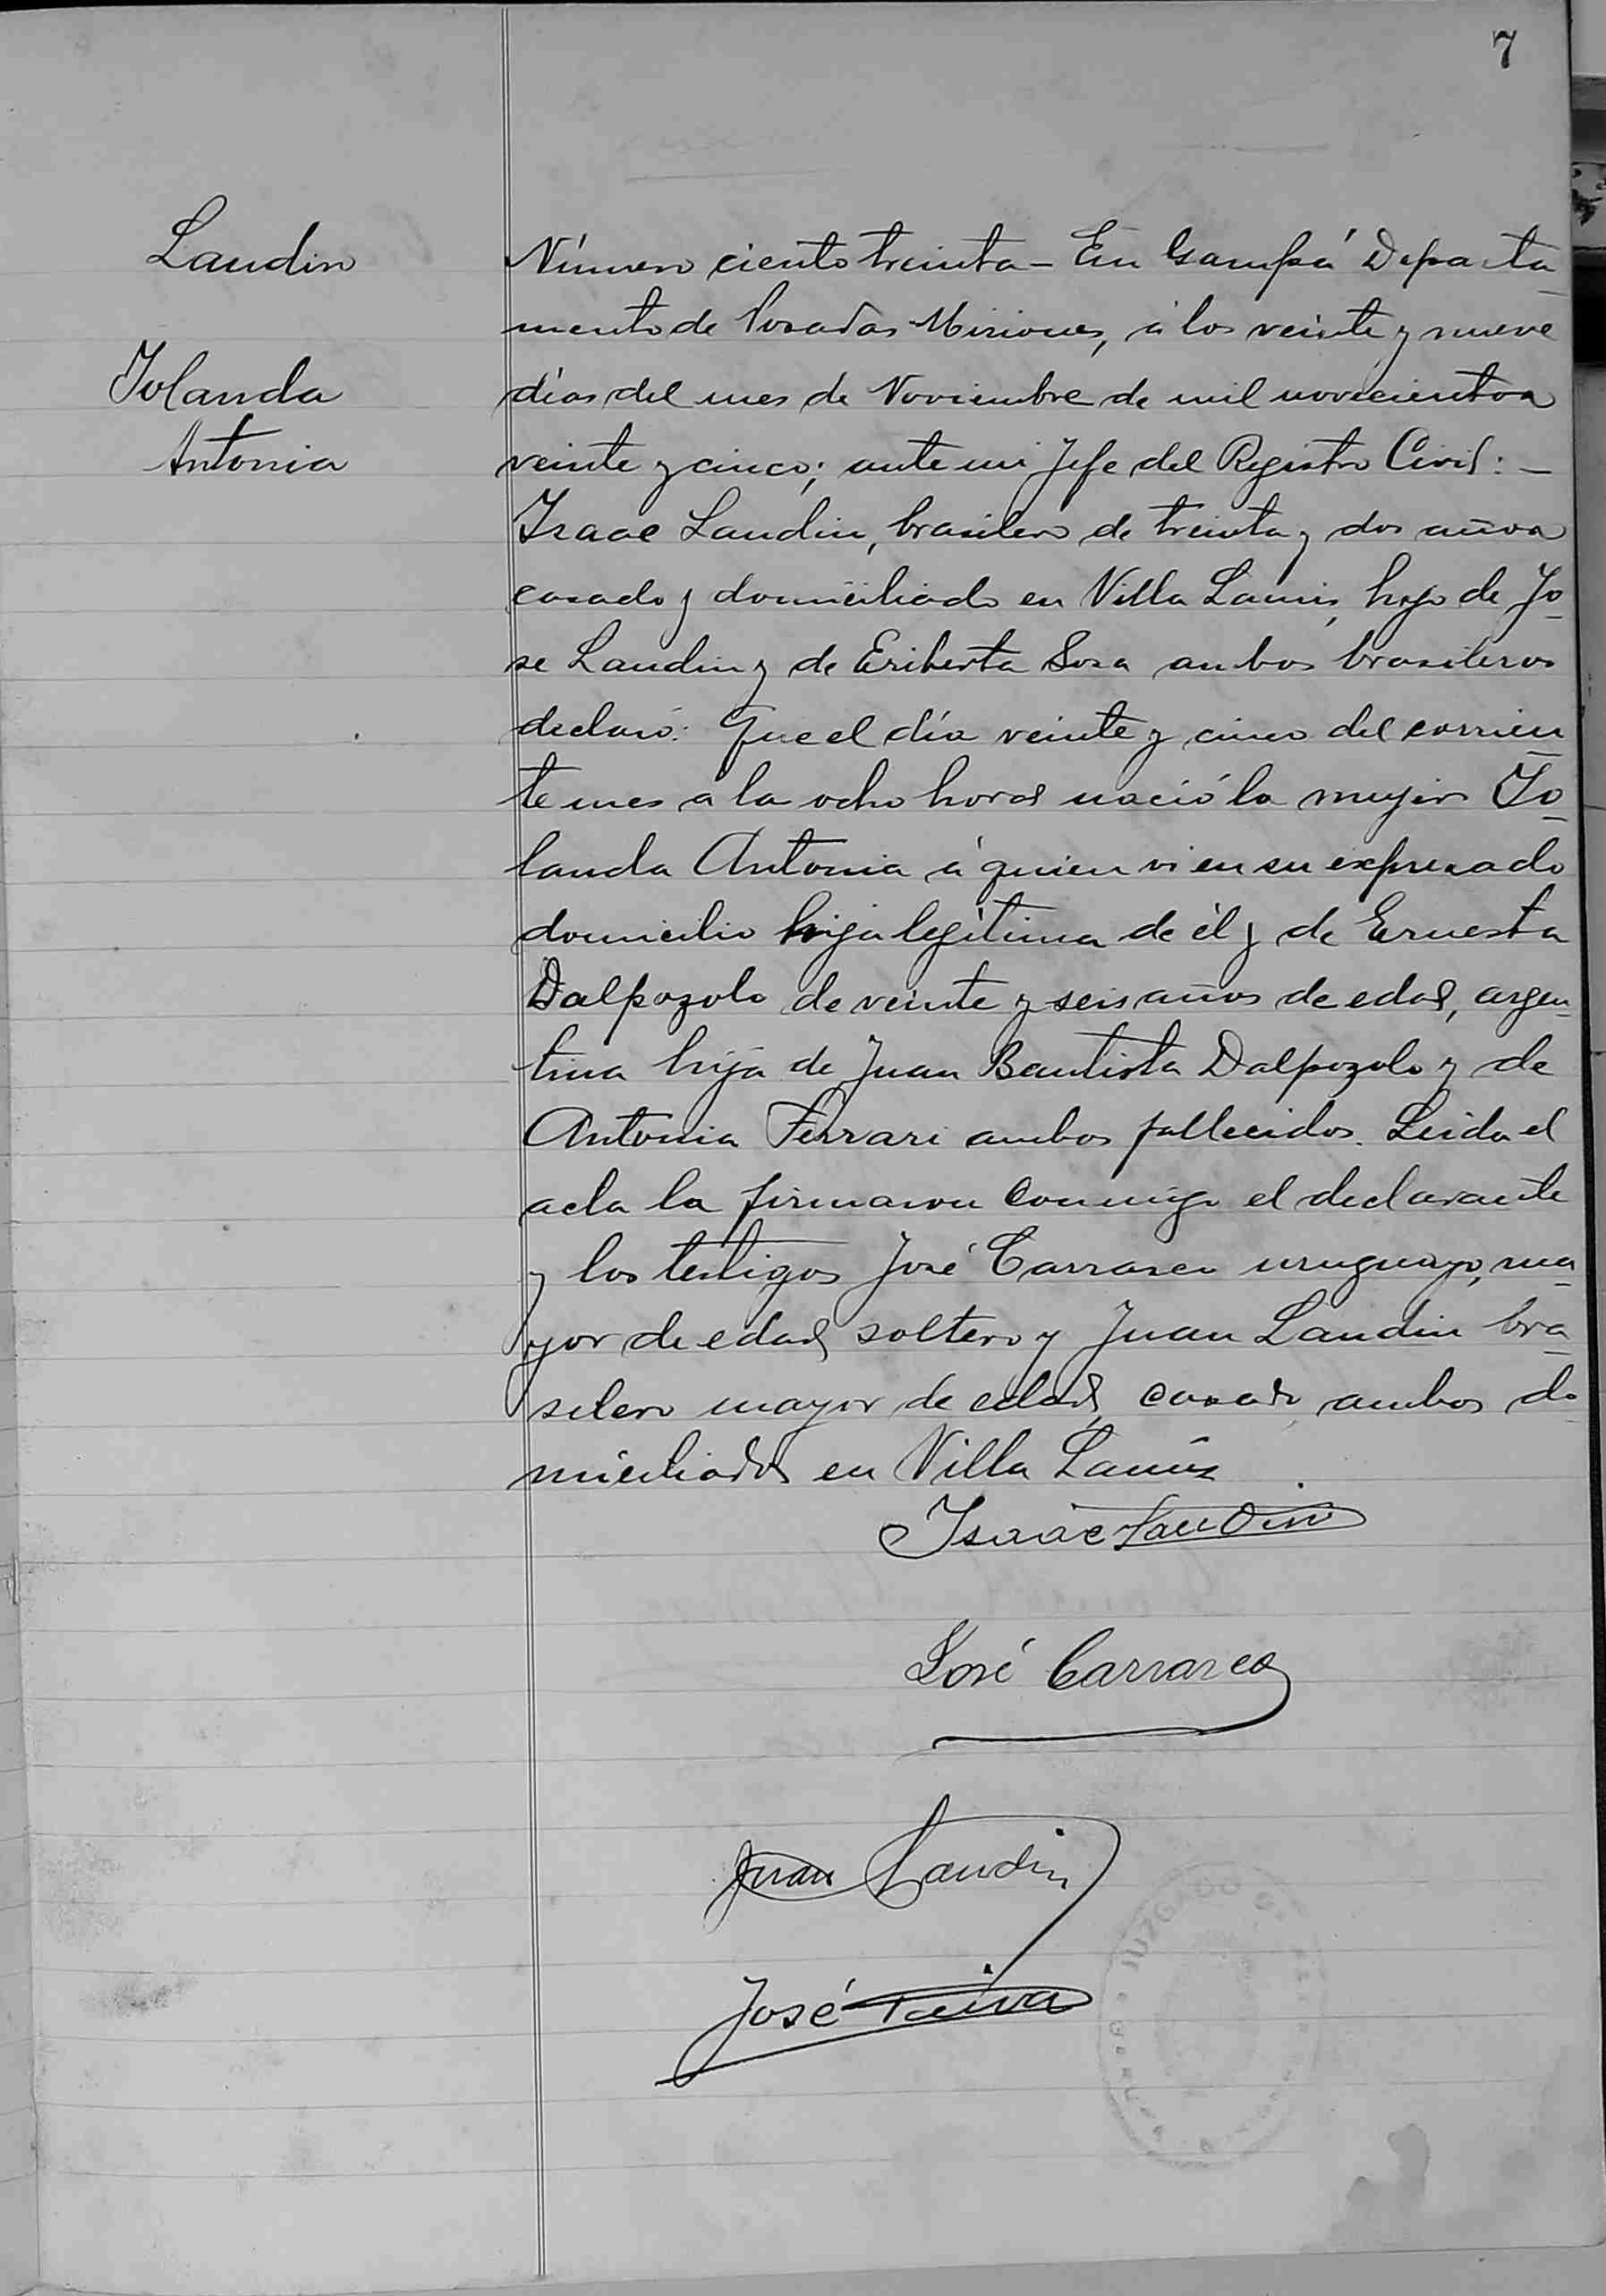 7
Laudin
Iolanda
Antonia
Número ciento treinta - En Garupá Departa
mento de Posadas Misiones, á los veinte y nueve
días del mes de Noviembre de mil novecientos
veinte y cinco; ante mi Jefe del Registro Civil: -
Isaac Laudin, brasilero de treinta y dos años
casado y domiciliado en Villa Lanús, hijo de Jo
se Laudin y de Eriberta Sosa ambos brasileros
declaró: Que el día veinte y cinco del corrien
te mes a la ocho horas nació la mujer Io
landa Antonia á quien vi en su expresado
domicilio hija legítima de él y de Ernesta
Dalpozolo de veinte y seis años de edad, argen
tina hija de Juan Bautista Dalpozolo y de
Antonia Ferrari ambos fallecidos. Leida el
acta la firmaron conmigo el declarante
y los testigos José Carrasco uruguayo, ma
yor de edad soltero y Juan Laudin bra
silero mayor de edad, casado, ambos do
miciliados en Villa Lanús
Isaac Laudin
José Carrasco
Juan Laudin
José Paiva
JUZGADO